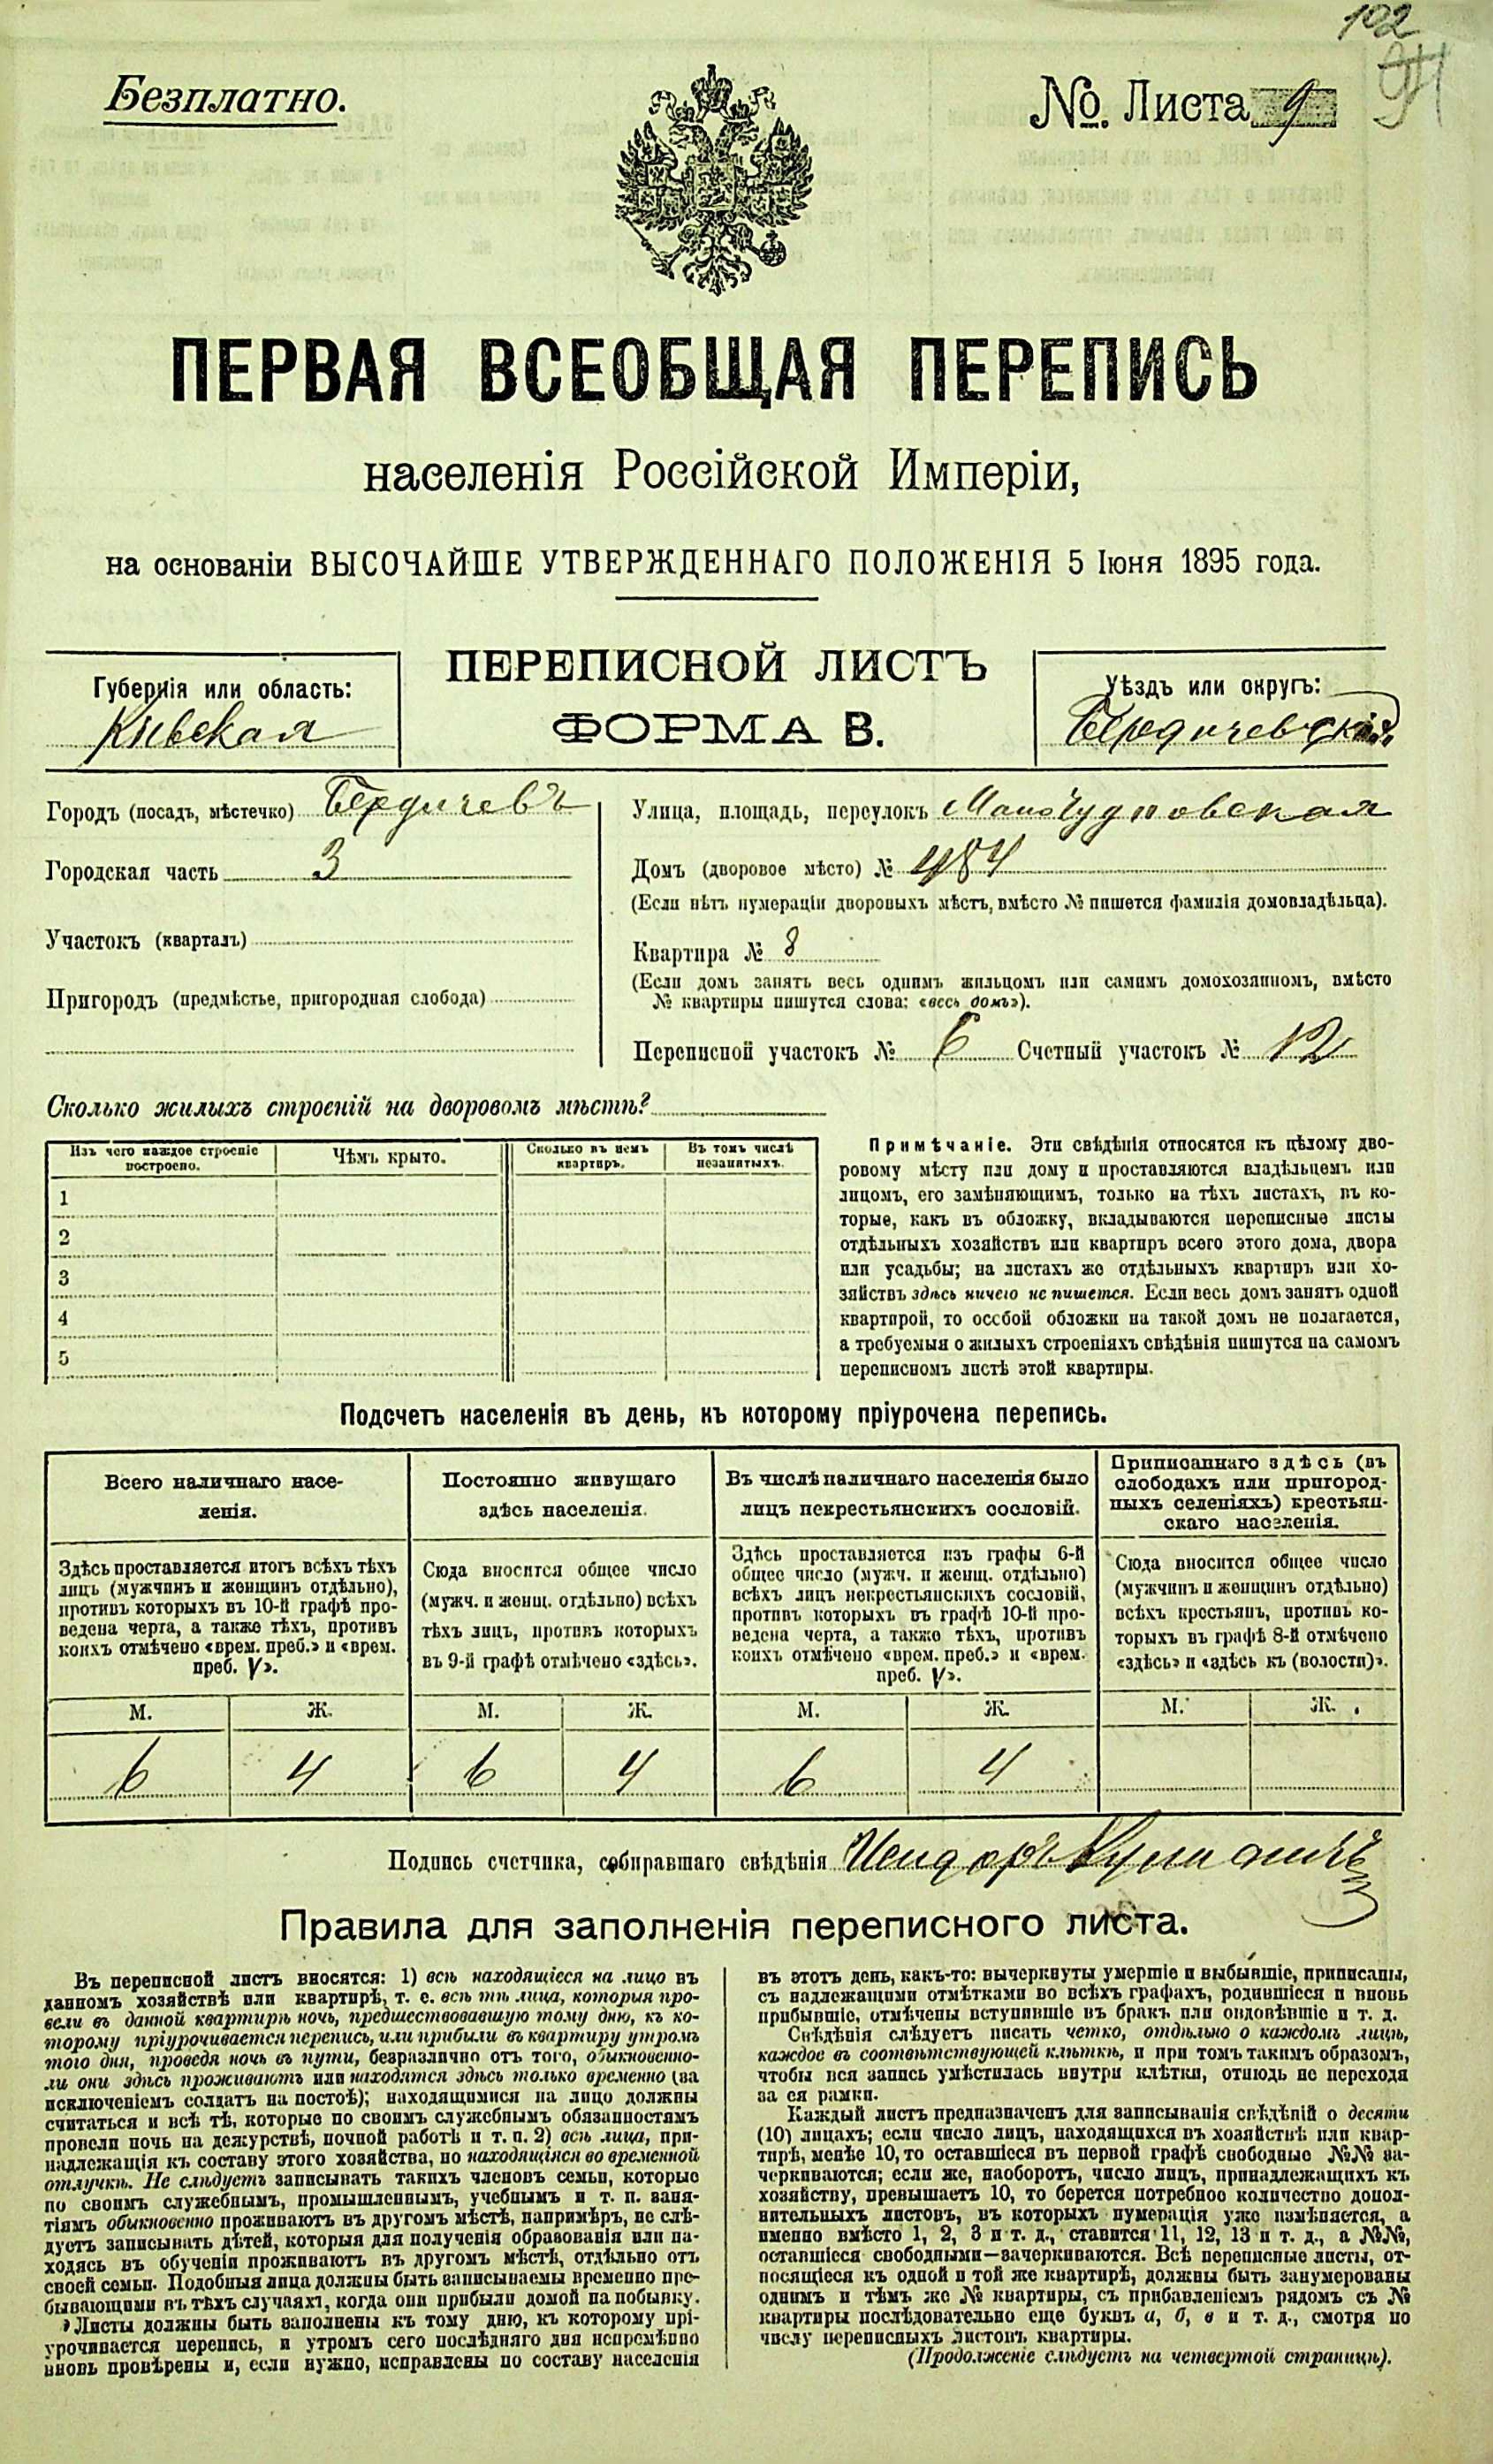 102
Безплатно.
№. Листа 9
ПЕРВАЯ ВСЕОБЩАЯ ПЕРЕПИСЬ
населенія Россійской Имперіи,
на основаніи ВЫСОЧАЙШЕ УТВЕРЖДЕННАГО ПОЛОЖЕНІЯ 5 Іюня 1895 года.
ПЕРЕПИСНОЙ ЛИСТЪ
ФОРМА В.
Губернія или область:
Кіевская
Уѣздъ или округъ:
Бердичевскій
Городъ (посадъ, мѣстечко) Бердичевъ
Городская часть 3
Участокъ (кварталъ)
Пригородъ (предмѣстье, пригородная слобода)
Улица, площадь, переулокъ МалоЧудновская
Домъ (дворовое мѣсто) № 484
(Если нѣтъ нумераціи дворовыхъ мѣстъ, вмѣсто № пишется фамилія домовладѣльца).
Квартира № 8
(Если домъ занятъ весь однимъ жильцомъ или самимъ домохозяиномъ, вмѣсто
№ квартиры пишутся слова: «весь домъ»).
Переписной участокъ № 6 Счетный участокъ № 12
Сколько жилыхъ строеній на дворовомъ мѣстѣ?
Изъ чего каждое строеніе
построено.
Чѣмъ крыто.
Сколько въ немъ
квартиръ.
Въ томъ числѣ
незанятыхъ.
1
2
3
4
5
Примѣчаніе. Эти свѣдѣнія относятся къ цѣлому дво-
ровому мѣсту или дому и проставляются владѣльцемъ или
лицомъ, его замѣняющимъ, только на тѣхъ листахъ, въ ко-
торые, какъ въ обложку, вкладываются переписные листы
отдѣльныхъ хозяйствъ или квартиръ всего этого дома, двора
или усадьбы; на листахъ же отдѣльныхъ квартиръ или хо-
зяйствъ здѣсь ничего не пишется. Если весь домъ занятъ одной
квартирой, то особой обложки на такой домъ не полагается,
а требуемыя о жилыхъ строеніяхъ свѣдѣнія пишутся на самомъ
переписномъ листѣ этой квартиры.
Подсчетъ населенія въ день, къ которому пріурочена перепись.
Всего наличнаго насе-
ленія.
Здѣсь проставляется итогъ всѣхъ тѣхъ
лицъ (мужчинъ и женщинъ отдѣльно),
противъ которыхъ въ 10-й графѣ про-
ведена черта, а также тѣхъ, противъ
коихъ отмѣчено «врем. преб.» и «врем.
преб. V».
Постоянно живущаго
здѣсь населенія.
Сюда вносится общее число
(мужч. и женщ. отдѣльно) всѣхъ
тѣхъ лицъ, противъ которыхъ
въ 9-й графѣ отмѣчено «здѣсь».
Въ числѣ наличнаго населенія было
лицъ некрестьянскихъ сословій.
Здѣсь проставляется изъ графы 6-й
общее число (мужч. и женщ. отдѣльно)
всѣхъ лицъ некрестьянскихъ сословій,
противъ которыхъ въ графѣ 10-й про-
ведена черта, а также тѣхъ, противъ
коихъ отмѣчено «врем. преб.» и «врем.
преб. V».
Приписаннаго здѣсь (въ
слободахъ или пригород-
ныхъ селеніяхъ) крестьян-
скаго населенія.
Сюда вносится общее число
(мужчинъ и женщинъ отдѣльно)
всѣхъ крестьянъ, противъ ко-
торыхъ въ графѣ 8-й отмѣчено
«здѣсь» и «здѣсь къ (волости)».
М. Ж. М. Ж. М. Ж. М. Ж.
6 4 6 4 6 4
Подпись счетчика, собиравшаго свѣдѣнія Исидоръ
Правила для заполненія переписного листа.
Въ переписной листъ вносятся: 1) всѣ находящіеся на лицо въ
данномъ хозяйствѣ или квартирѣ, т. е. всѣ тѣ лица, которыя про-
вели въ данной квартирѣ ночь, предшествовавшую тому дню, къ ко-
торому пріурочивается перепись, или прибыли въ квартиру утромъ
того дня, проведя ночь въ пути, безразлично отъ того, обыкновенно-
ли они здѣсь проживаютъ или находятся здѣсь только временно (за
исключеніемъ солдатъ на постоѣ); находящимися на лицо должны
считаться и всѣ тѣ, которые по своимъ служебнымъ обязанностямъ
провели ночь на дежурствѣ, ночной работѣ и т. п. 2) всѣ лица, при-
надлежащія къ составу этого хозяйства, но находящіяся во временной
отлучкѣ. Не слѣдуетъ записывать такихъ членовъ семьи, которые
по своимъ служебнымъ, промышленнымъ, учебнымъ и т. п. заня-
тіямъ обыкновенно проживаютъ въ другомъ мѣстѣ, напримѣръ, не слѣ-
дуетъ записывать дѣтей, которыя для полученія образованія или на-
ходясь въ обученіи проживаютъ въ другомъ мѣстѣ, отдѣльно отъ
своей семьи. Подобныя лица должны быть записываемы временно пре-
бывающими въ тѣхъ случаяхъ, когда они прибыли домой на побывку.
Листы должны быть заполнены къ тому дню, къ которому прі-
урочивается перепись, и утромъ сего послѣдняго дня непремѣнно
вновь провѣрены и, если нужно, исправлены по составу населенія
въ этотъ день, какъ-то: вычеркнуты умершіе и выбывшіе, приписаны,
съ надлежащими отмѣтками во всѣхъ графахъ, родившіеся и вновь
прибывшіе, отмѣчены вступившіе въ бракъ или овдовѣвшіе и т. д.
Свѣдѣнія слѣдуетъ писать четко, отдѣльно о каждомъ лицѣ,
каждое въ соотвѣтствующей клѣткѣ, и при томъ такимъ образомъ,
чтобы вся запись умѣстилась внутри клѣтки, отнюдь не переходя
за ея рамки.
Каждый листъ предназначенъ для записыванія свѣдѣній о десяти
(10) лицахъ; если число лицъ, находящихся въ хозяйствѣ или квар-
тирѣ, менѣе 10, то оставшіеся въ первой графѣ свободные №№ за-
черкиваются; если же, наоборотъ, число лицъ, принадлежащихъ къ
хозяйству, превышаетъ 10, то берется потребное количество допол-
нительныхъ листовъ, въ которыхъ нумерація уже измѣняется, а
именно вмѣсто 1, 2, 3 и т. д., ставится 11, 12, 13 и т. д., а №№,
оставшіеся свободными—зачеркиваются. Всѣ переписные листы, от-
носящіеся къ одной и той же квартирѣ, должны быть занумерованы
однимъ и тѣмъ же № квартиры, съ прибавленіемъ рядомъ съ №
квартиры послѣдовательно еще буквъ а, б, в и т. д., смотря по
числу переписныхъ листовъ квартиры.
(Продолженіе слѣдуетъ на четвертой страницѣ).